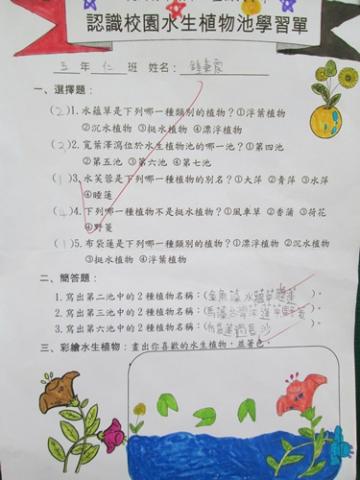 認識校園水生植物池學習單
五年仁班 姓名：
一、選擇題：
(2)1.水蘊草是下列哪一種類別的植物？①浮葉植物
②沉水植物 ③挺水植物 ④漂浮植物
(2)2.寬葉澤瀉位於水生植物池的哪一池？①第四池
②第五池 ③第六池 ④第七池
(1)3.水芙蓉是下列哪一種植物的別名？①大萍 ②青萍 ③水萍
④睡蓮
(4)4.下列哪一種植物不是挺水植物？①風車草 ②香蒲 ③荷花
④野薑
(1)5.布袋蓮是下列哪一種類別的植物？①漂浮植物 ②沉水植物
③挺水植物 ④浮葉植物
二、簡答題：
1.寫出第二池中的2種植物名稱：(金魚藻 水蘊草 睡蓮)。
2.寫出第三池中的2種植物名稱：()。
3.寫出第六池中的2種植物名稱：()。
三、彩繪水生植物：畫出你喜歡的水生植物，並著色。